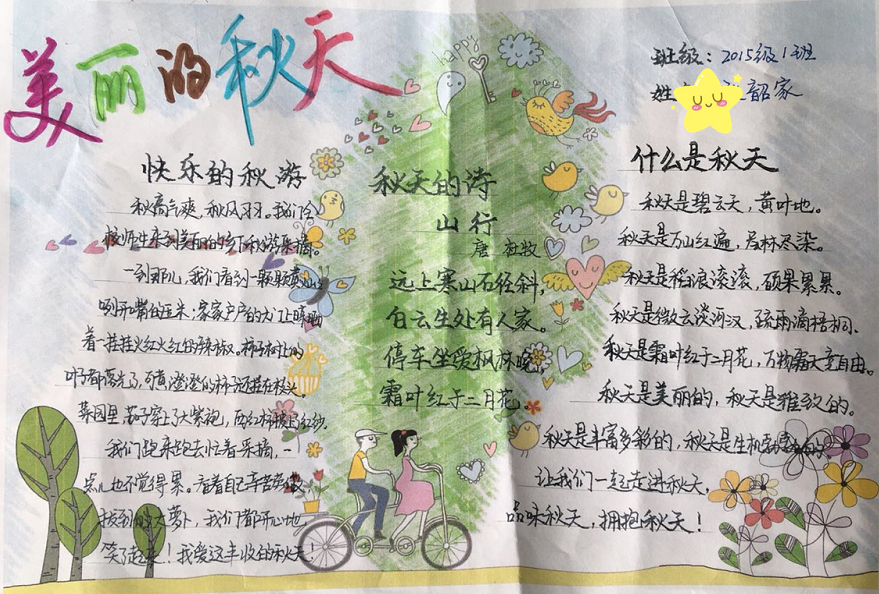 美丽的秋天
班级：2015级1班
姓
韶家
快乐的秋游
秋高气爽，秋风习习。我们全
校师生来到美丽的
秋游采摘。
一到那儿，我们看到一颗颗黄灿灿
咧开嘴的玉米；家家户户的大门上晾晒
着一挂挂火红火红的辣椒。柿子树上的
叶子都落光了，可黄澄澄的柿子还挂在枝头。
菜园里，茄子穿上了大紫袍，西红柿披上了红纱。
我们跑来跑去忙着采摘，一
点儿也不觉得累。看着自己辛苦
拔到的大萝卜，我们都开心地
笑了起来！我爱这丰收的秋天！
happy
秋天的诗
山行
唐 杜牧
远上寒山石径斜，
白云生处有人家。
停车坐爱枫林晚，
霜叶红于二月花。
什么是秋天
秋天是碧云天，黄叶地。
秋天是万山红遍，层林尽染。
秋天是稻浪滚滚，硕果累累。
秋天是微云淡河汉，疏雨滴梧桐。
秋天是霜叶红于二月花，万物霜天竞自由。
秋天是美丽的，秋天是雅致的。
秋天是丰富多彩的，秋天是生机勃勃的。
让我们一起走进秋天，
品味秋天，拥抱秋天！